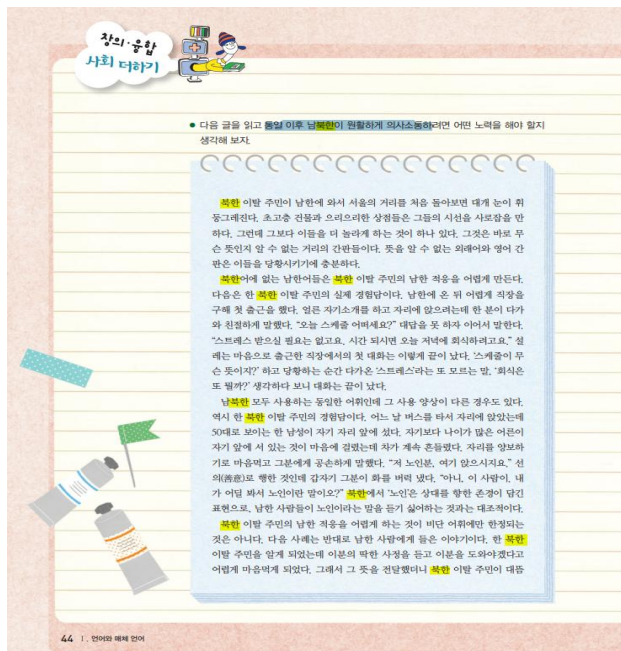 창의·융합
사회 더하기
● 다음 글을 읽고 통일 이후 남북한이 원활하게 의사소통하려면 어떤 노력을 해야 할지
생각해 보자.
북한 이탈 주민이 남한에 와서 서울의 거리를 처음 돌아보면 대개 눈이 휘
둥그레진다. 초고층 건물과 으리으리한 상점들은 그들의 시선을 사로잡을 만
하다. 그런데 그보다 이들을 더 놀라게 하는 것이 하나 있다. 그것은 바로 무
슨 뜻인지 알 수 없는 거리의 간판들이다. 뜻을 알 수 없는 외래어와 영어 간
판은 이들을 당황시키기에 충분하다.
북한어에 없는 남한어들은 북한 이탈 주민의 남한 적응을 어렵게 만든다.
다음은 한 북한 이탈 주민의 실제 경험담이다. 남한에 온 뒤 어렵게 직장을
구해 첫 출근을 했다. 얼른 자기소개를 하고 자리에 앉으려는데 한 분이 다가
와 친절하게 말했다. “오늘 스케줄 어떠세요?” 대답을 못 하자 이어서 말한다.
“스트레스 받으실 필요는 없고요. 시간 되시면 오늘 저녁에 회식하려고요.” 설
레는 마음으로 출근한 직장에서의 첫 대화는 이렇게 끝이 났다. ‘스케줄이 무
슨 뜻이지?’ 하고 당황하는 순간 다가온 ‘스트레스’라는 또 모르는 말, ‘회식은
또 뭘까?’ 생각하다 보니 대화는 끝이 났다.
남북한 모두 사용하는 동일한 어휘인데 그 사용 양상이 다른 경우도 있다.
역시 한 북한 이탈 주민의 경험담이다. 어느 날 버스를 타서 자리에 앉았는데
50대로 보이는 한 남성이 자기 자리 앞에 섰다. 자기보다 나이가 많은 어른이
자기 앞에 서 있는 것이 마음에 걸렸는데 차가 계속 흔들렸다. 자리를 양보하
기로 마음먹고 그분에게 공손하게 말했다. “저 노인분, 여기 앉으시지요.” 선
의(善意)로 행한 것인데 갑자기 그분이 화를 버럭 냈다. “아니, 이 사람이, 내
가 어딜 봐서 노인이란 말이오?” 북한에서 ‘노인’은 상대를 향한 존경이 담긴
표현으로, 남한 사람들이 노인이라는 말을 듣기 싫어하는 것과는 대조적이다.
북한 이탈 주민의 남한 적응을 어렵게 하는 것이 비단 어휘에만 한정되는
것은 아니다. 다음 사례는 반대로 남한 사람에게 들은 이야기이다. 한 북한
이탈 주민을 알게 되었는데 이분의 딱한 사정을 듣고 이분을 도와야겠다고
어렵게 마음먹게 되었다. 그래서 그 뜻을 전달했더니 북한 이탈 주민이 대뜸
44 Ⅰ. 언어와 매체 언어